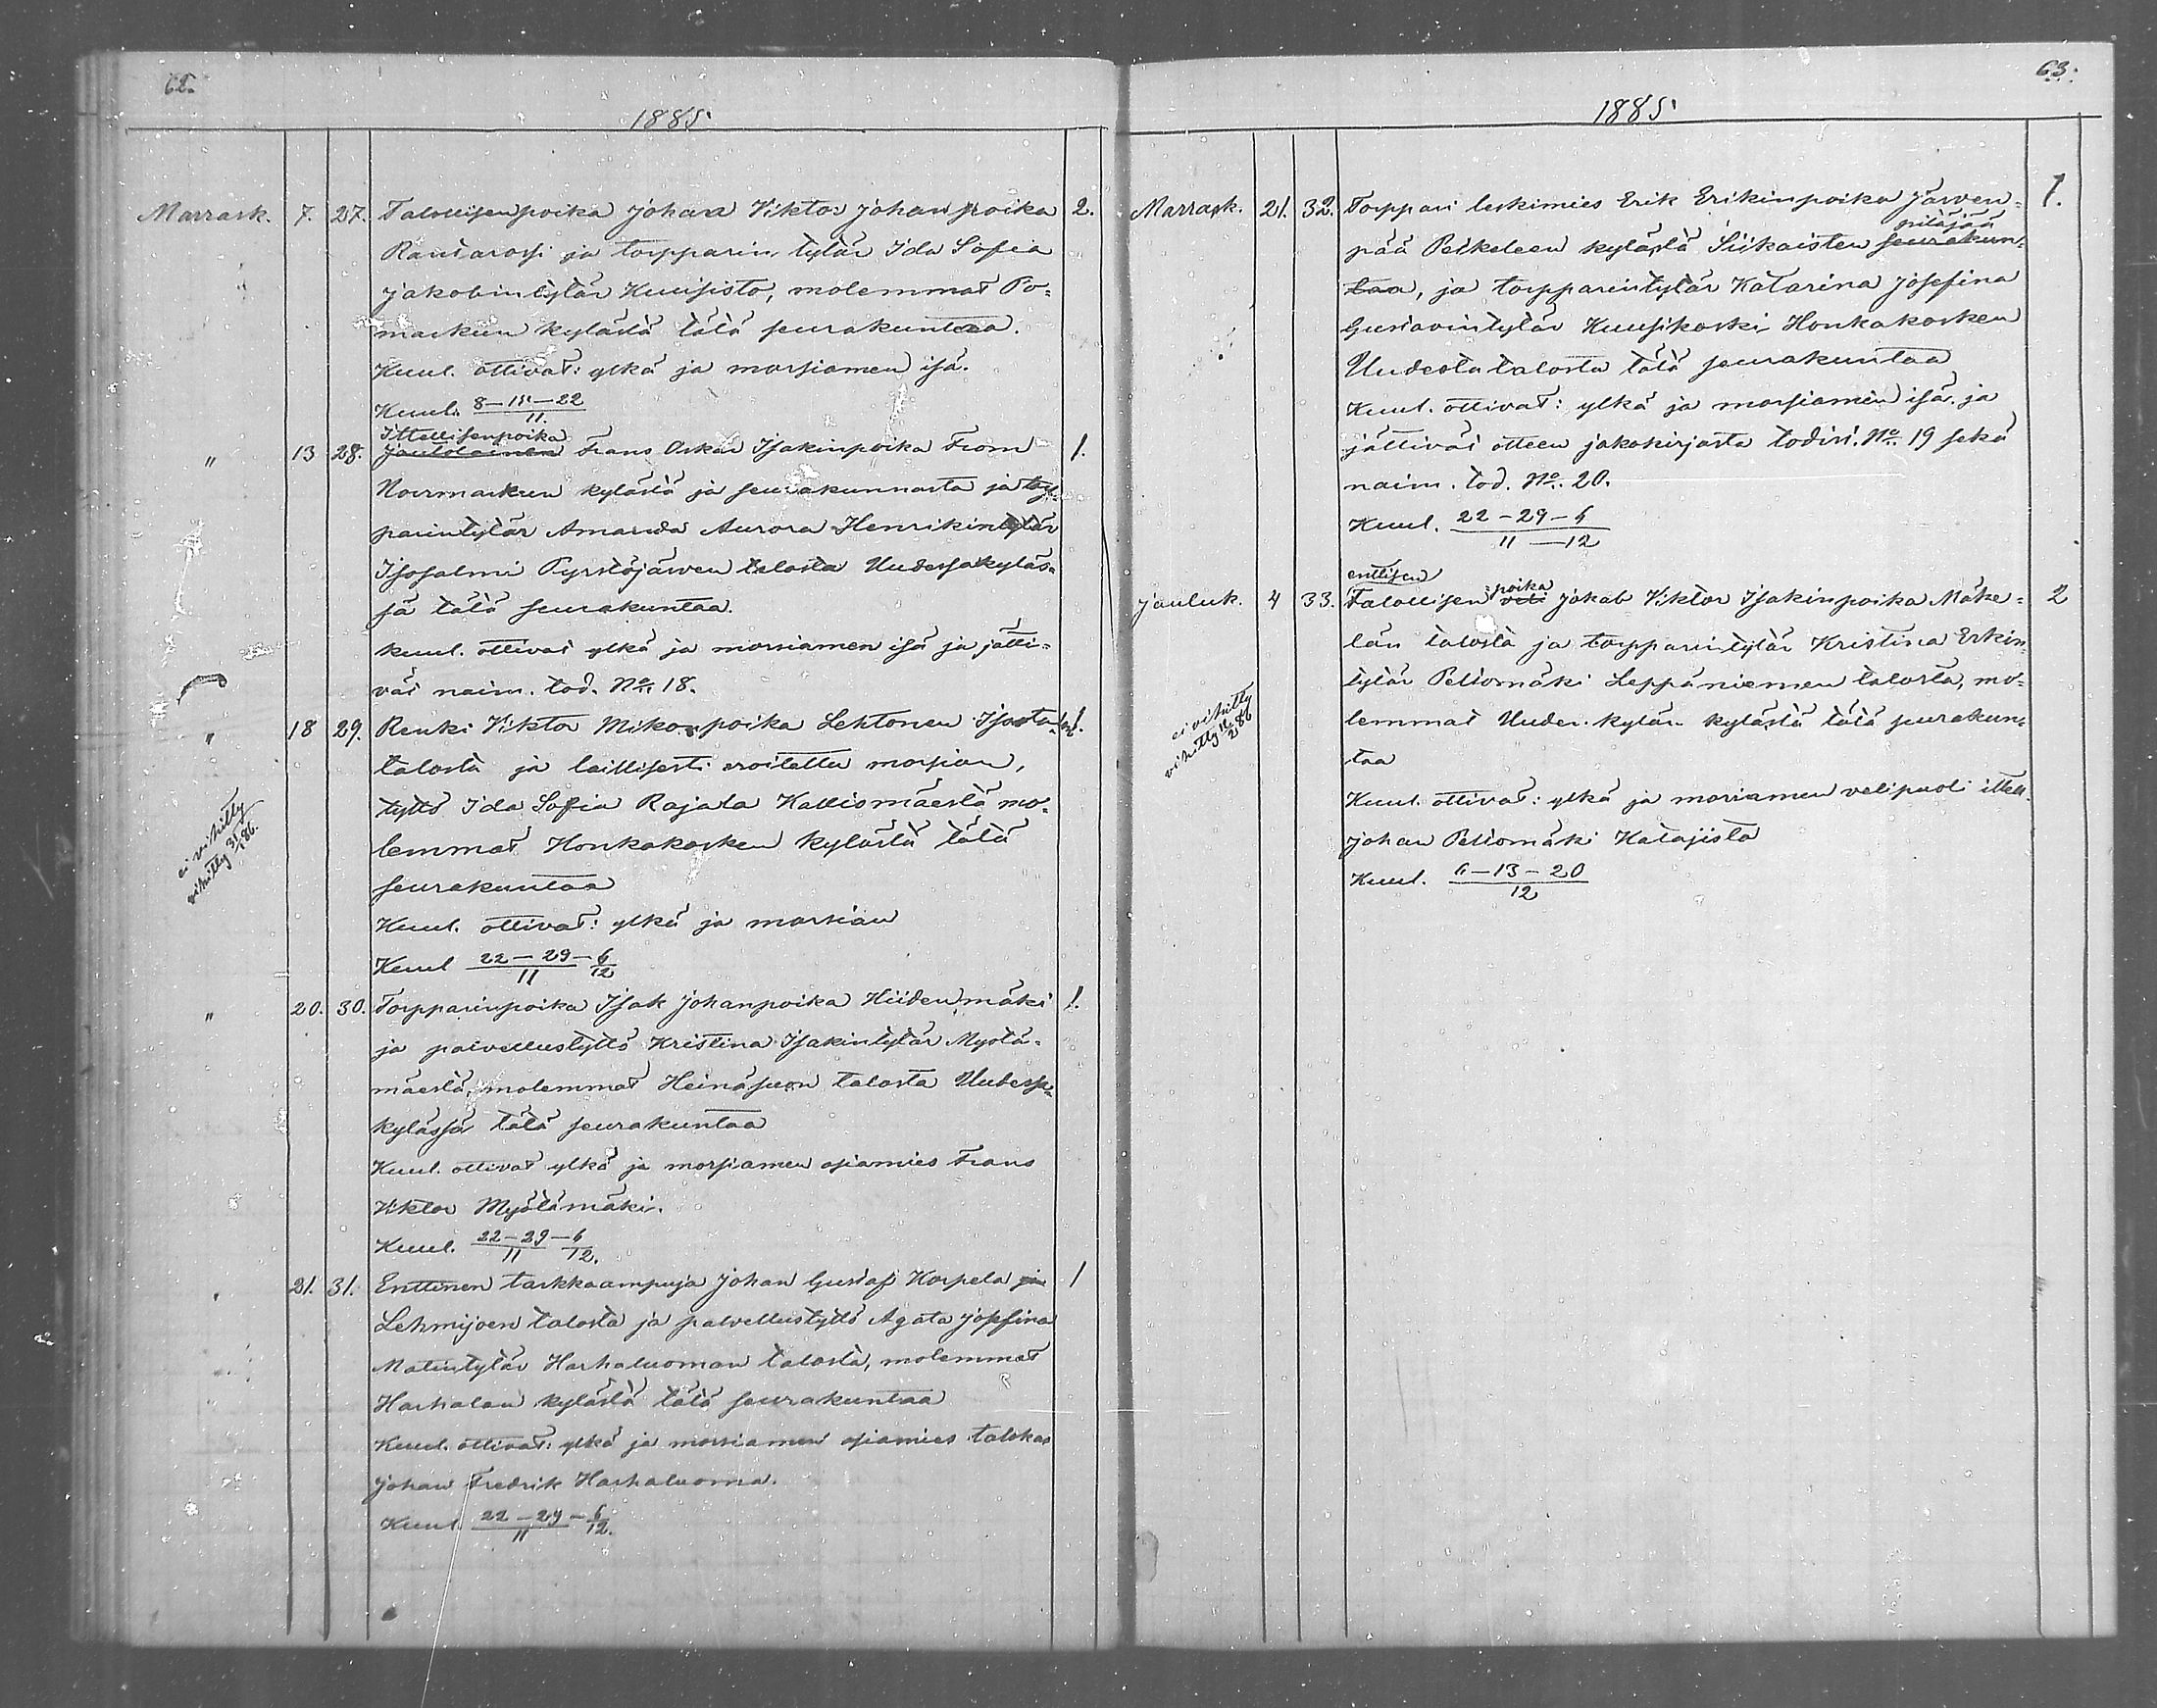 62.
1885.
Marrask. 7. 27. Talollisenpoika Johan Viktor Johanpoika 2.
Rantarossi ja torpparin tytär Ida Sofia
Jakobintytär Kuusisto, molemmat Po-
markun kylästä tätä seurakuntaa.
Kuul. ottivat: ylkä ja morsiamen isä.
Kuul. 8–15–22
11.
Ittellisenpoika
„ 13 28. Frans Oskar Isakinpoika From 1.
Noormarkun kylästä ja seurakunnasta ja torp-
parintytär Amanda Aurora Henrikintytär
Isosalmi Pyrstöjärven talosta Uudessakyläs-
sä tätä seurakuntaa.
kuul. ottivat ylkä ja morsiamen isä ja jätti-
vät naim. tod. No. 18.
„ 18 29. Renki Viktor Mikonpoika Lehtonen Isosta- 1.
talosta ja laillisesti eroitettu morsian,
tyttö Ida Sofia Rajala Kalliomäestä mo-
ei vihitty
vihitty 31/1 86.
lemmat Honkakosken kylästä tätä
seurakuntaa
Kuul. ottivat: ylkä ja morsian
Kuul 22–29–6
11 12
„ 20. 30. Torpparinpoika Isak Johanpoika Hiidenmäki 1.
ja palvellustyttö Kristina Isakintytär Myötä-
mäestä, molemmat Heinäsuon talosta Uudessa-
kylässä tätä seurakuntaa
Kuul. ottivat ylkä ja morsiamen asiamies Frans
Viktor Myötämäki.
Kuul. 22–29–6
11 12.
„ 21. 31. Enttinen tarkkaampuja Johan Gustaf Korpela ja 1
Lehmijoen talosta ja palvellustyttö Agata Josefina
Matintytär Harhaluoman talosta, molemmat
Harhalan kylästä tätä seurakuntaa
Kuul. ottivat: ylkä ja morsiamen asiamies talokas
Johan Fredrik Harhaluoma.
Kuul 22–29–6
11 12.
63.
1885
Marrask. 21. 32. Torppari leskimies Erik Erikinpoika Järven- 1.
pitäjää
pää Peikeleen kylästä Siikaisten seurakun-
taa, ja torpparintytär Katarina Josefina
Gustavintytär Kuusikoski Honkakosken
Uudesta talosta tätä seurakuntaa
Kuul. ottivat: ylkä ja morsiamen isä ja
jättivät otteen jakokirjasta todist. No. 19 sekä
naim. tod. No. 20.
Kuul. 22–29–6
11–12
enttisen
poika
Jouluk. 4 33. Talollisen veli Jakob Viktor Isakinpoika Mäke- 2
län talosta ja torpparintytär Kristina Erkin-
tytär Peltomäki Leppäniemen talosta, mo-
ei vihitty
vihitty
86
lemmat Uuden kylän kylästä tätä seurakun-
taa
Kuul. ottivat: ylkä ja morsiamen velipuoli ittell.
Johan Peltomäki Katajista
Kuul. 6–13–20
12